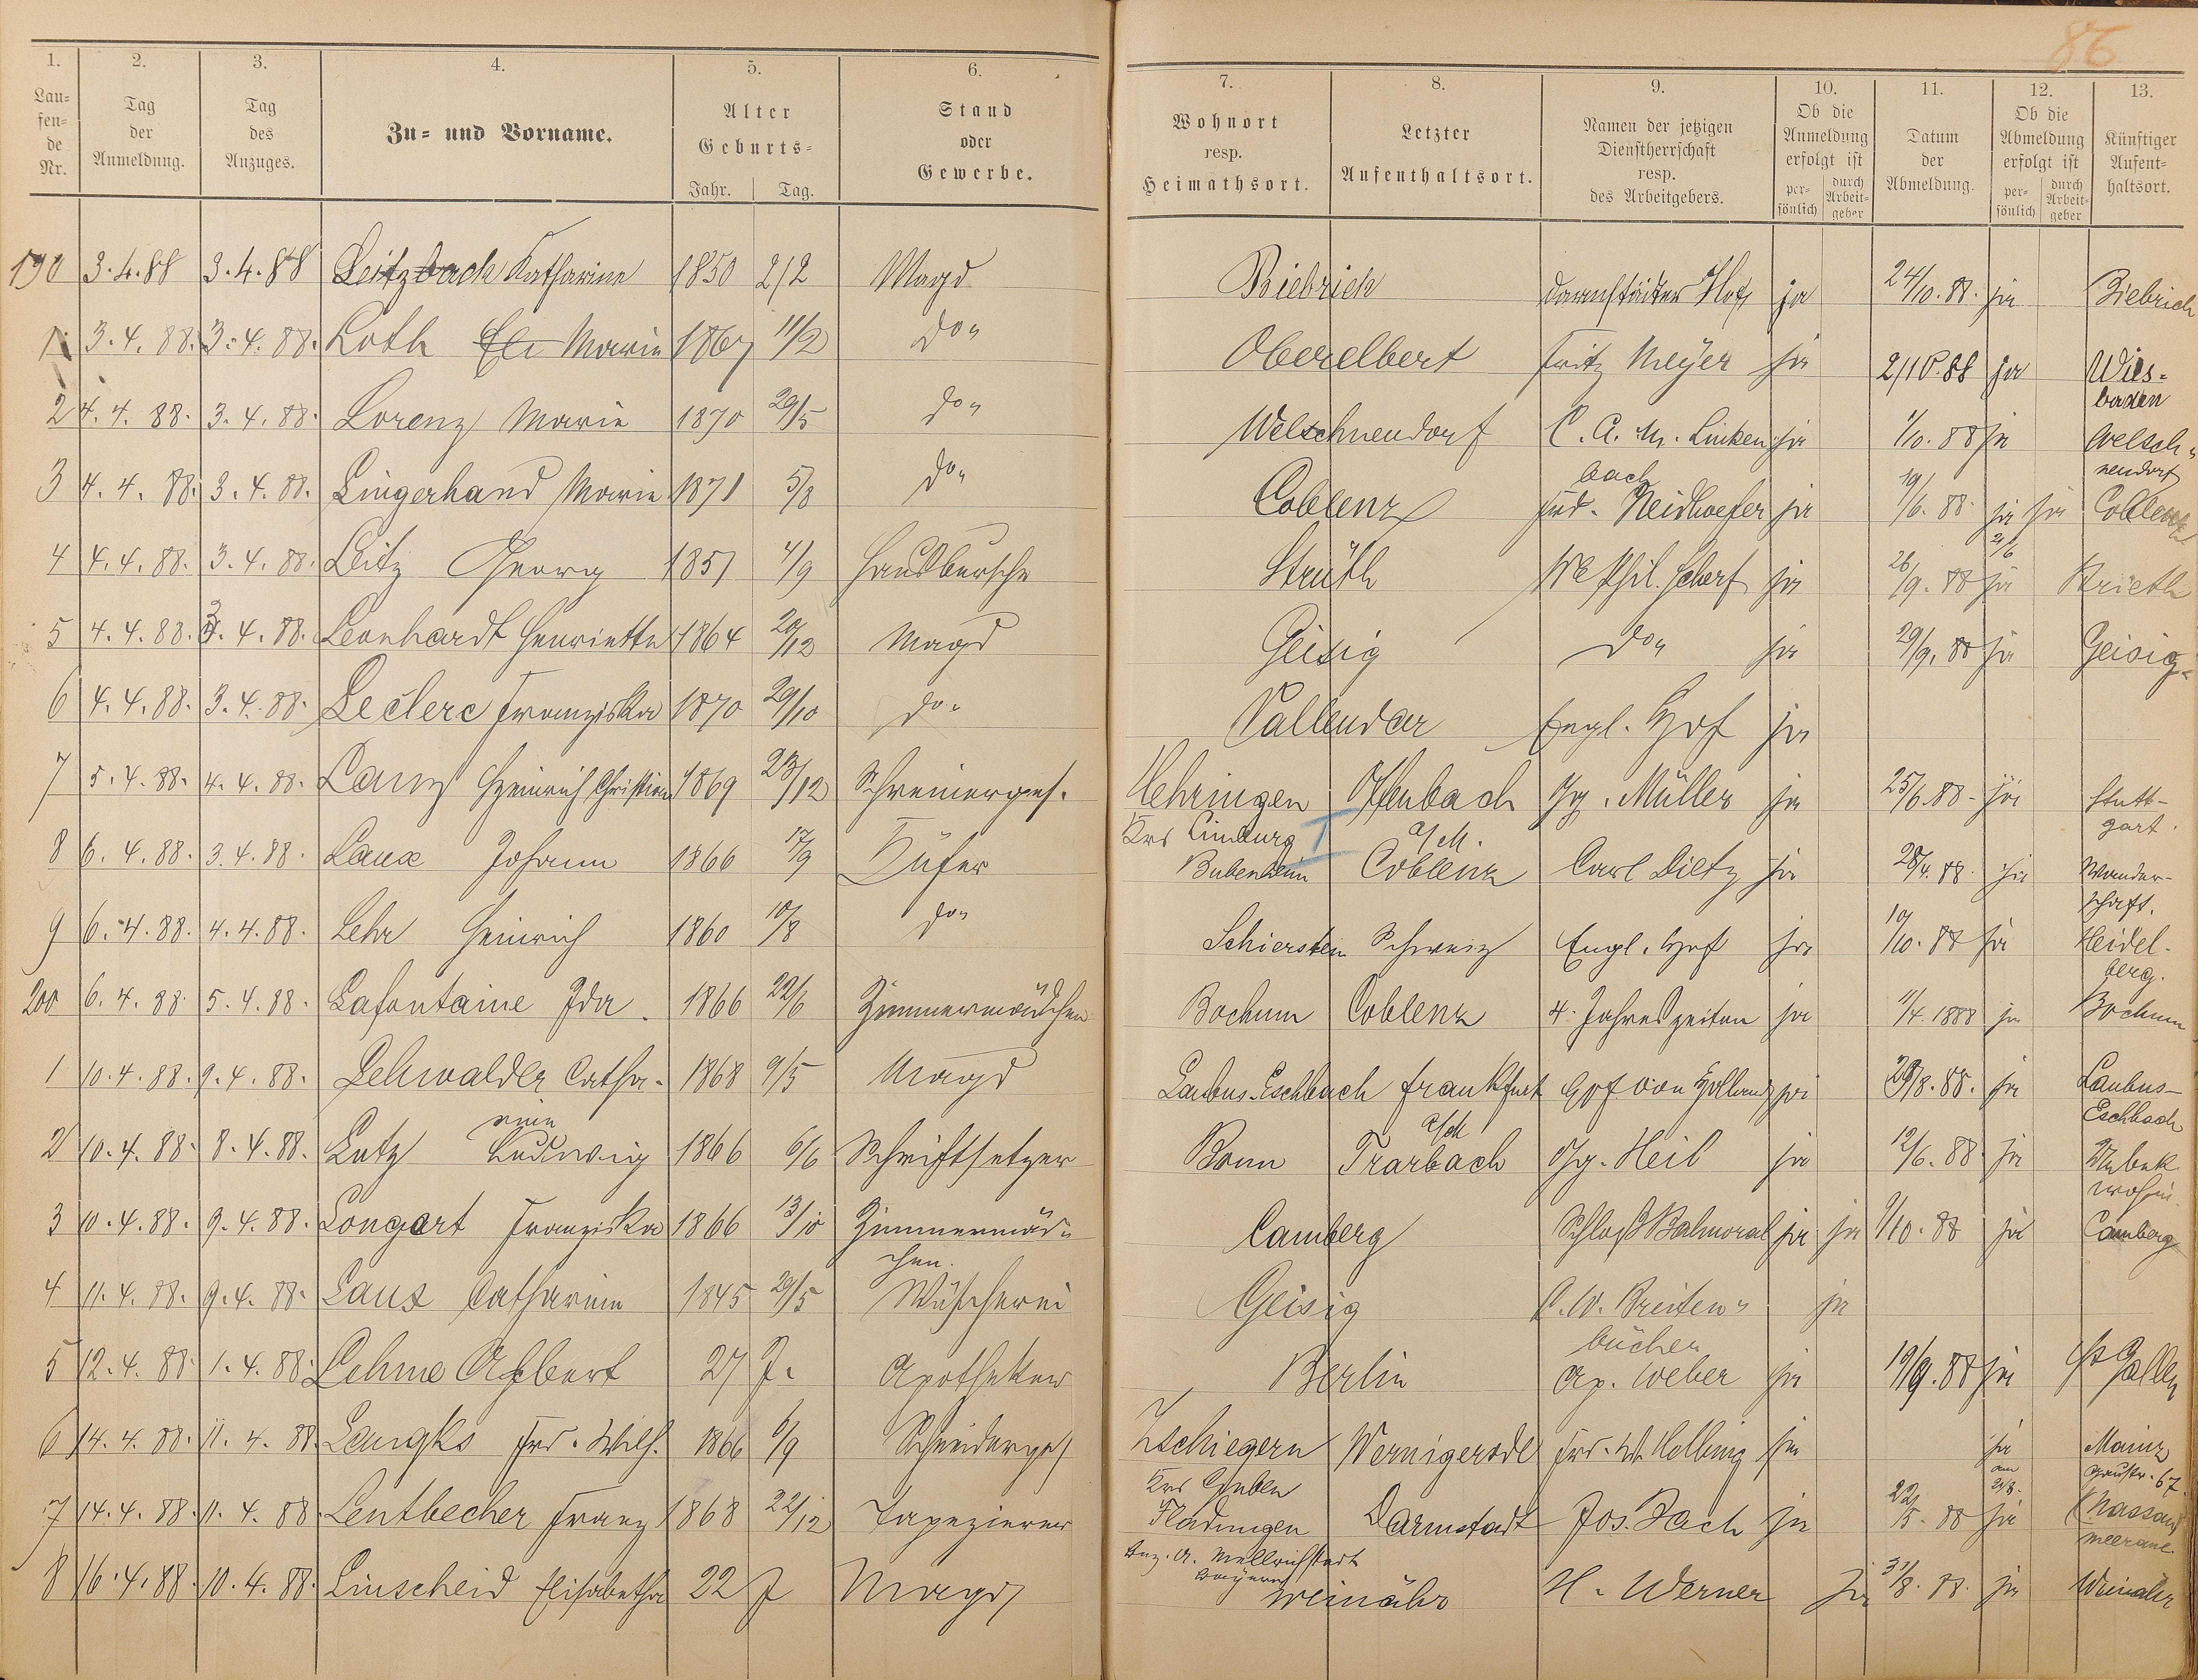 86
1. 2. 3. 4. 5. 6. 7. 8. 9. 10. 11. 12. 13.
Lau=
fen=
de
Nr.
Tag
der
Anmeldung.
Tag
des
Anzuges.
Zu= und Vorname.
Alter
Geburts=
Jahr. Tag.
Stand
oder
Gewerbe.
Wohnort
resp.
Heimathsort.
Letzter
Aufenthaltsort.
Namen der jetzigen
Dienstherrschaft
resp.
des Arbeitgebers.
Ob die
Anmeldung
erfolgt ist
per=
sönlich
durch
Arbeit=
geber
Datum
der
Abmeldung.
Ob die
Abmeldung
erfolgt ist
per=
sönlich
durch
Arbeit=
geber
Künftiger
Aufent=
haltsort.
190 3.4.88 3.4.88 Leitzbach Katharine 1850 2/2 Magd Biebrich Darmstädter Hof ja 24/10.88. ja Biebrich
1 3.4.88. 3.4.88. Loth Marie 1867 11/2 do" Oberelbert Fritz Meyer ja 2/10.88 ja Wies=
baden
2 4.4.88. 3.4.88. Lorenz Marie 1870 29/5 do" Welschneudorf C. A. M. Linken= ja 1/10.88 ja Welsch=
bach neudorf
3 4.4.88. 3.4.88. Lingerhand Marie 1871 5/8 do" Coblenz Frd. Neidhoefer ja 19/6.88. ja ja Coblenz
21/6
4 4.4.88. 3.4.88. Leitz Georg 1851 4/9 Hausbursche Strüth We Phil. Scherf ja 26/9.88 ja Strieth
5 4.4.88. 3.4.88. Leonhardt Henriette 1864 20/12 Magd Geisig do" ja 29/9.88 ja Geisig.
6 4.4.88. 3.4.88. Leclerc Franziska 1870 29/10 do" Vallendar Engl. Hof ja
7 5.4.88. 4.4.88. Lanz Heinrich Christian 1869 23/12 Schreinerges. Hehringen Offenbach Gg. Müller ja 25/6.88. ja Stutt-
Krs Limburg a/M. gart.
8 6.4.88. 3.4.88. Laux Johann 1866 17/9 Küfer Bubenheim Coblenz Carl Dietz ja 28/4.88. ja Wander-
schaft.
9 6.4.88. 4.4.88. Lehr Heinrich 1860 10/8 do" Schierstein Schweiz Engl. Hof ja 10/10.88 ja Heidel-
berg.
200 6.4.88. 5.4.88. Lafontaine Ida. 1866 22/6 Zimmermädchen Bochum Coblenz 4. Jahreszeiten ja 11/4.1888 ja Bochum
1 10.4.88. 9.4.88. Lehwalder Catha- 1868 9/5 Magd Laubus-Eschbach Frankfurt Hof von Holland ja 29/8.88. ja Laubus-
rine a/M Eschbach
2 10.4.88. 8.4.88. Lutz Ludwig 1866 6/6 Schriftsetzer Bonn Trarbach Gg. Heil ja 12/6.88. ja Unbek.
wohin.
3 10.4.88. 9.4.88. Longart Franziska 1866 13/10 Zimmermäd= Camberg Schloß Balmoral ja ja 9/10.88 ja Camberg
chen.
4 11.4.88. 9.4.88. Laux Catharine 1845 29/5 Wäscherei Geisig C. W. Breiten= ja
bücher
5 12.4.88. 1.4.88. Lehme Albert 27 J. Apotheker Berlin Ap. Weber ja 19/9.88 ja St Gallen
6 14.4.88. 11.4.88. Langks Frd. Wilh. 1866 6/9 Schneiderges Zschiegern Wernigerode Frd. W. Helbing ja ja Mainz
Krs Guben am
7 14.4.88. 11.4.88. Lentbecher Franz 1868 22/12 Tapezierer Fladungen Darmstadt Jos. Bach ja 22/5.88 ja Nassau
Bez. A. Mellrichstadt
Bayern
8 16.4.88. 10.4.88. Linscheid Elisabetha 22 J Magd Weinähr H. Werner ja 31/8.88. ja Weinähr